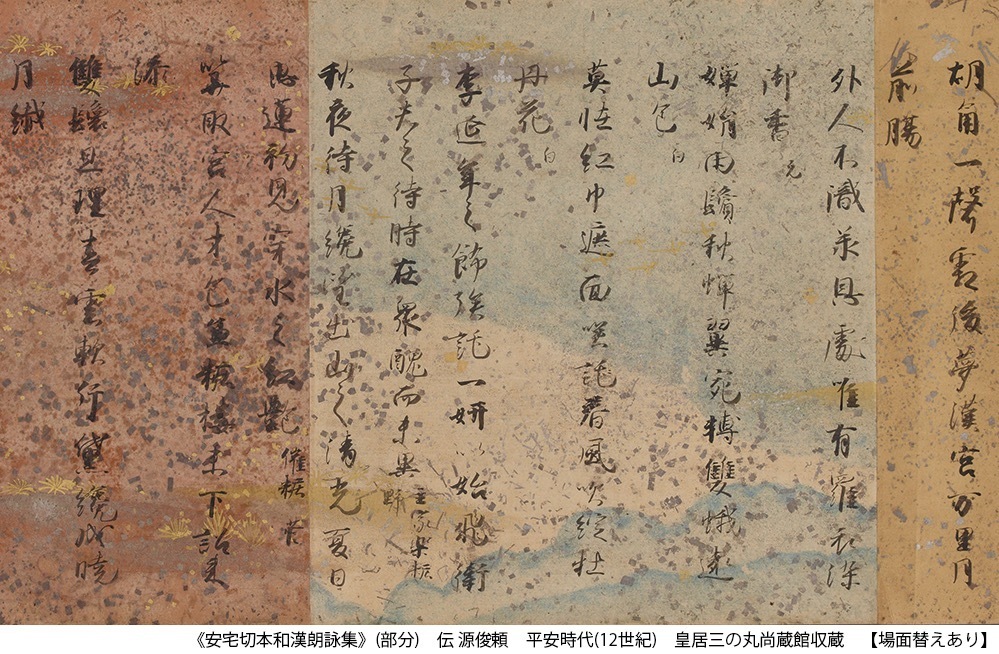 胡角一聲霜後夢漢宮万里月
前腸
外人不識承恩處唯有羅衣染
御香 元
嬋娟両鬢秋蝉翼宛轉雙蛾遠
山色 白
莫恠紅巾遮面咲託春風吹綻牡
丹花 白
李延年之餘族託一妍以始飛衛
子夫之待時在衆醜而未異
秋夜待月纔望出山之清光夏日
思蓮初見穿水之紅艶 催粧 菅
算取宮人才色兼粧樓未下詔来
添
雙鬟且理春雲軟行黛纔成暁
月繊
《安宅切本和漢朗詠集》(部分)　伝 源俊頼　平安時代(12世紀)　皇居三の丸尚蔵館収蔵　【場面替えあり】